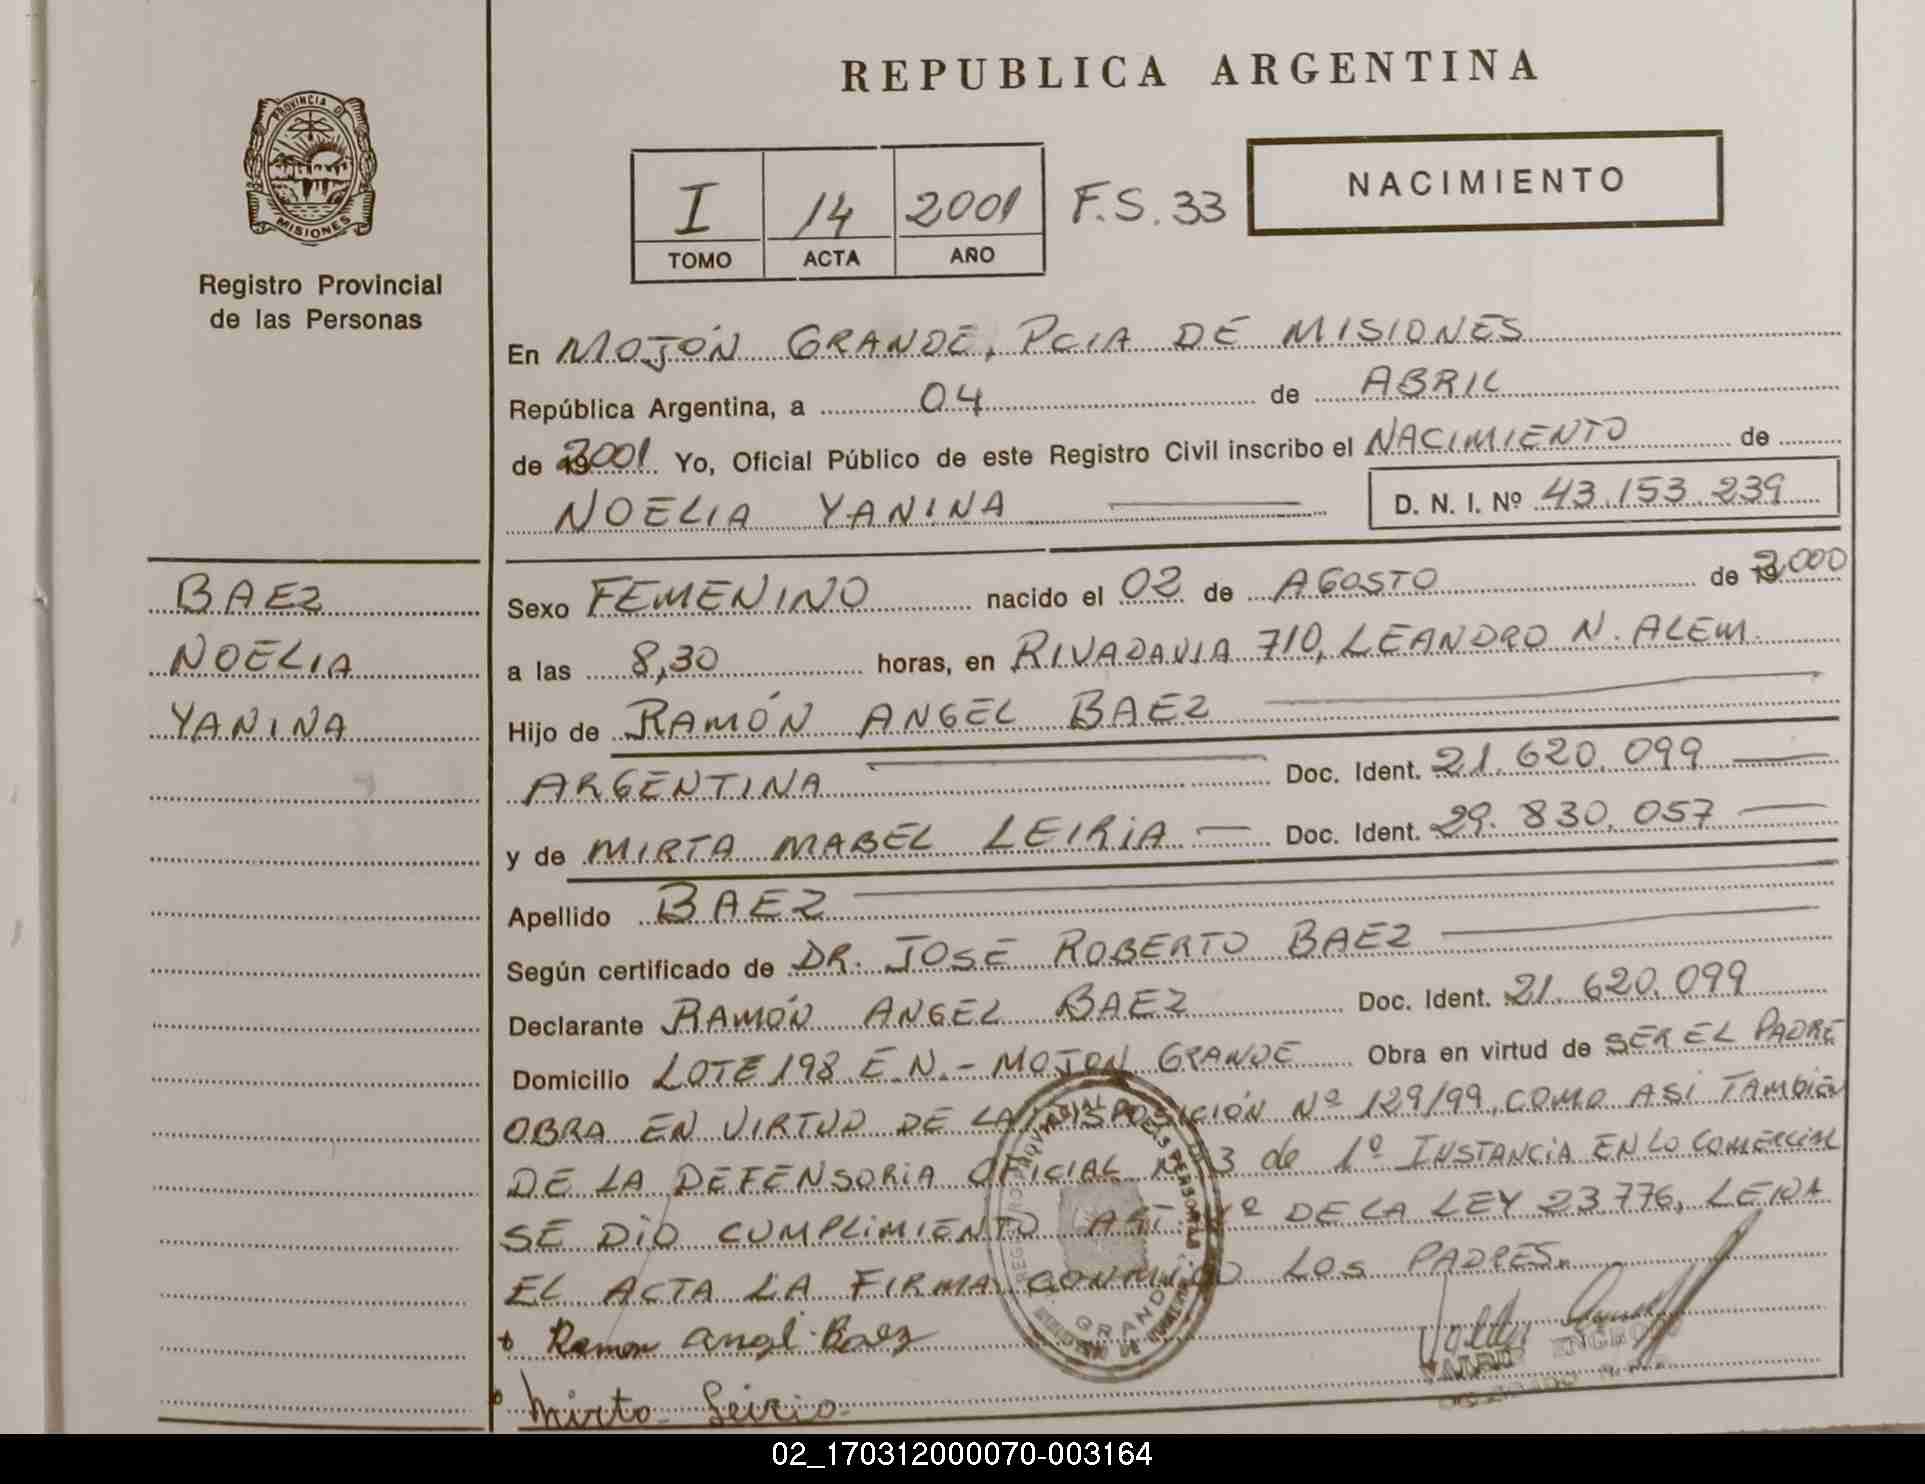 PROVINCIA D
MISIONES
Registro Provincial
de las Personas
REPUBLICA ARGENTINA
I 14 2001 F.S. 33
TOMO ACTA AÑO
NACIMIENTO
En MOJÓN GRANDE, PCIA DE MISIONES
República Argentina, a 04 de ABRIL
de 2001 Yo, Oficial Público de este Registro Civil inscribo el NACIMIENTO de
NOELIA YANINA D. N. I. Nº 43.153.239
BAEZ
NOELIA
YANINA
Sexo FEMENINO nacido el 02 de AGOSTO de 2000
a las 8,30 horas, en RIVADAVIA 710, LEANDRO N. ALEM.
Hijo de RAMÓN ANGEL BAEZ
ARGENTINA Doc. Ident. 21.620.099
y de MIRTA MABEL LEIRIA Doc. Ident. 29.830.057
Apellido BAEZ
Según certificado de DR. JOSE ROBERTO BAEZ
Declarante RAMÓN ANGEL BAEZ Doc. Ident. 21.620.099
Domicilio LOTE 198 E.N.- MOJON GRANDE Obra en virtud de SER EL PADRE
OBRA EN VIRTUD DE LA DISPOSICIÓN Nº 129/99, COMO ASI TAMBIEN
DE LA DEFENSORIA OFICIAL Nº 3 de 1º INSTANCIA EN LO COMERCIAL
SE DIO CUMPLIMIENTO ART. DE LA LEY 23.776, LEIDA
EL ACTA LA FIRMAN CONMIGO LOS PADRES.
Ramon Angel Baez
Mirta Leiria
02_170312000070-003164